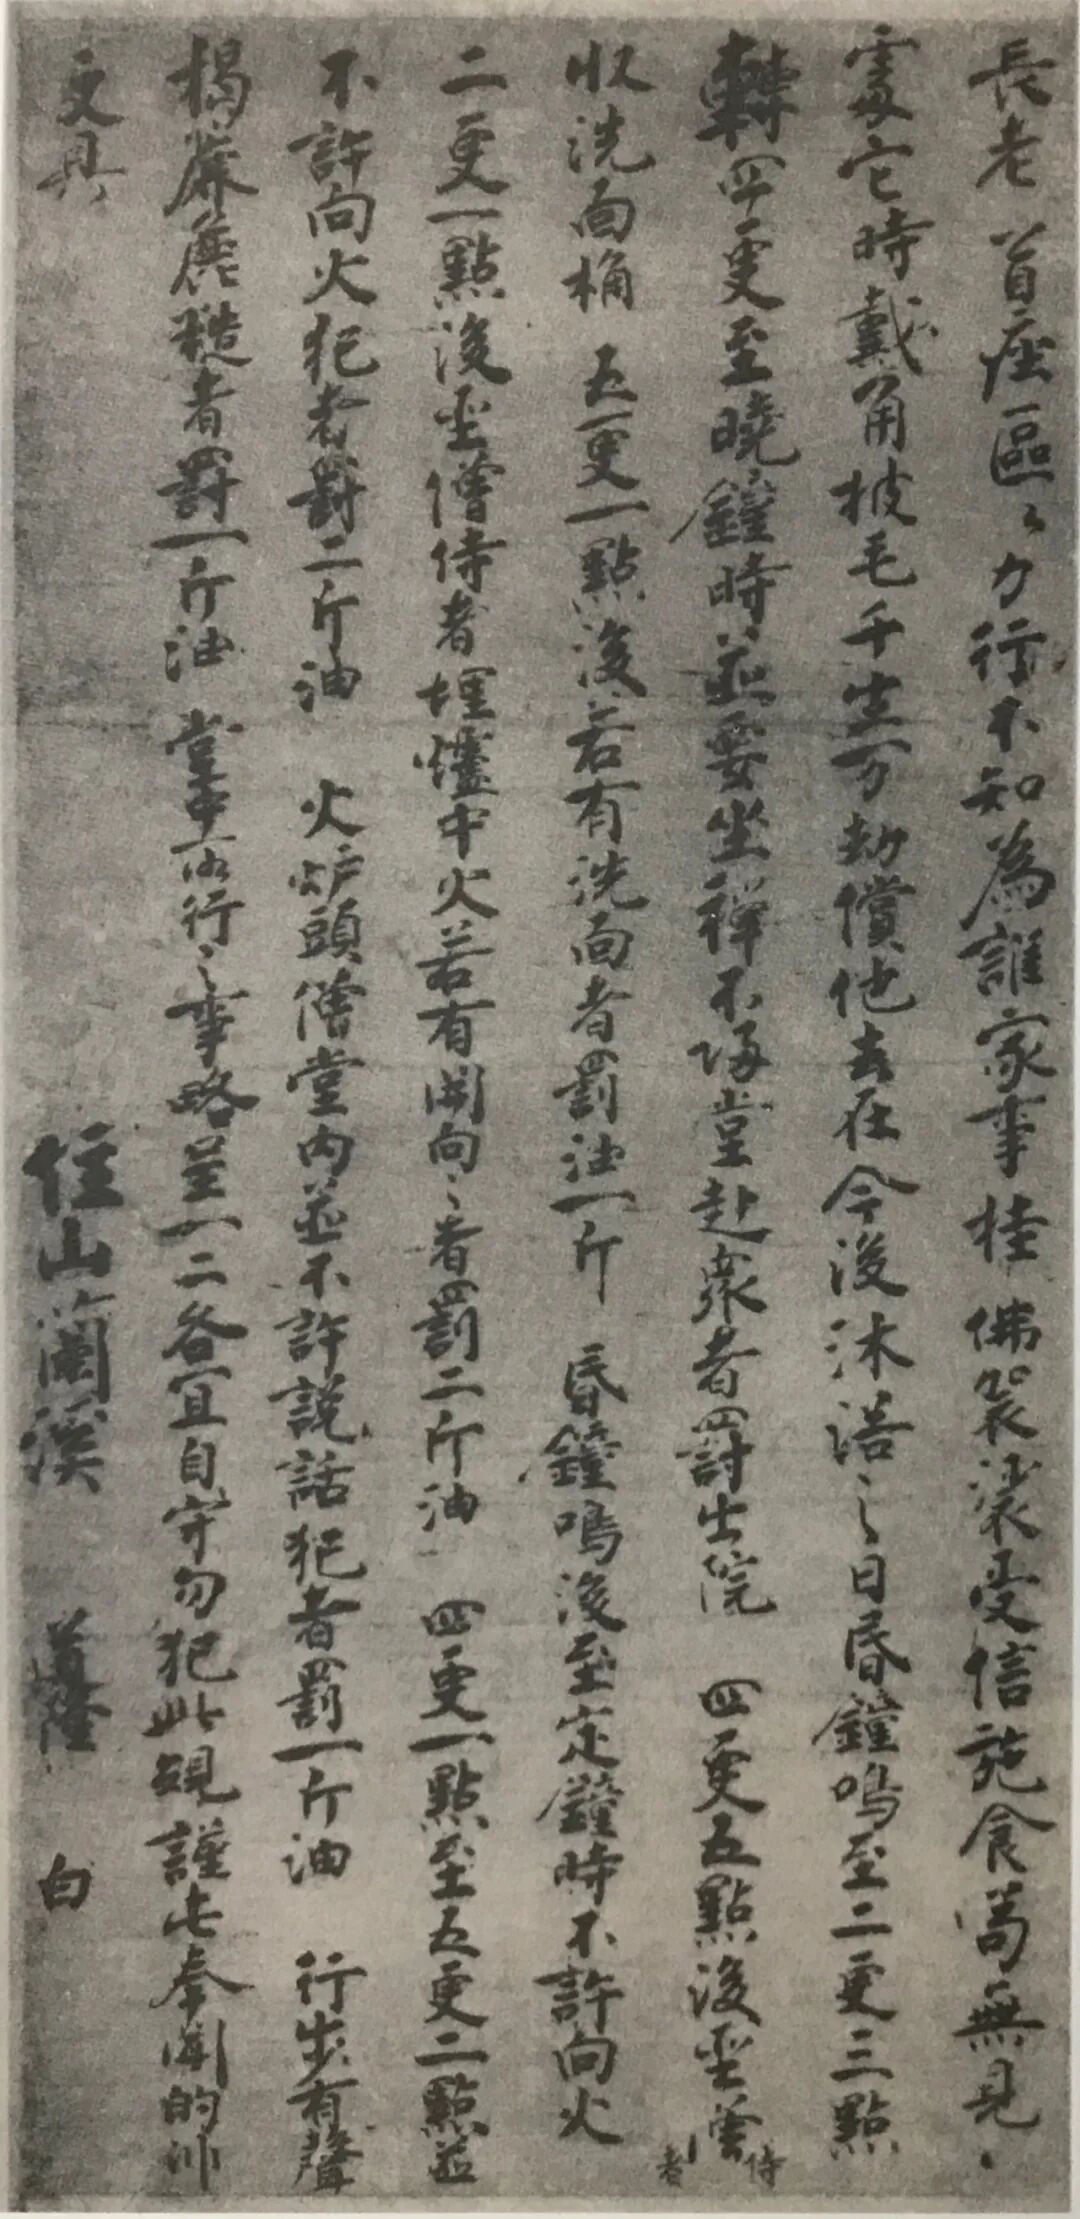 長老首座區〻力行不知為誰家事掛佛袈裟受信施食苟無見〻
處它時戴角披毛千生万劫償他去在今後沐浴之日昏鐘鳴至二更三點
轉四更至曉鐘時並要坐禪不歸堂赴衆者罰出院 四更五點後聖僧侍者
收洗面桶 五更一點後若有洗面者罰油一斤 昏鐘鳴後至定鐘時不許向火
二更一點後聖僧侍者埋爐中火若有開向〻者罰二斤油 四更一點至五更二點並
不許向火犯者罰二斤油 火炉頭僧堂内並不許說話犯者罰一斤油 行步有聲
揭簾麁糙者罰一斤油 堂中所行之事略呈一二各宜自守勿犯此規謹此奉聞的非
文具 住山蘭溪 道隆 白